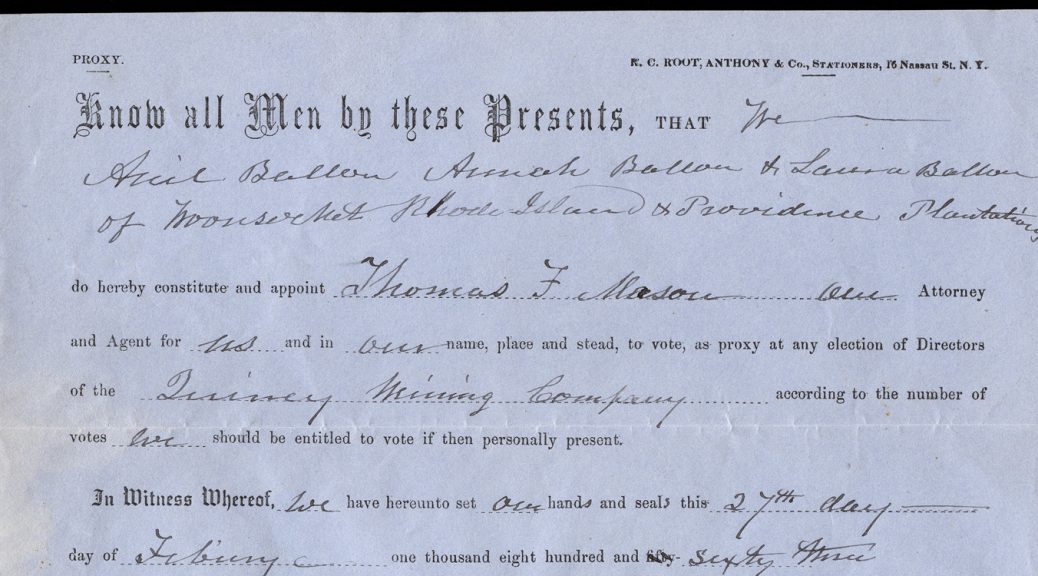 PROXY.
R. C. ROOT, ANTHONY & Co., STATIONERS, 16 Nassau St. N. Y.
Know all Men by these Presents, THAT We
Ariel Ballou Annah Ballou & Laura Ballou
of Woonsocket Rhode Island & Providence Plantations
do hereby constitute and appoint Thomas F Mason our Attorney
and Agent for us and in our name, place and stead, to vote, as proxy at any election of Directors
of the Quincy Mining Company according to the number of
votes we should be entitled to vote if then personally present.
In Witness Whereof, we have hereunto set our hands and seals this 27th day
day of Febuury one thousand eight hundred and fifty sixty three